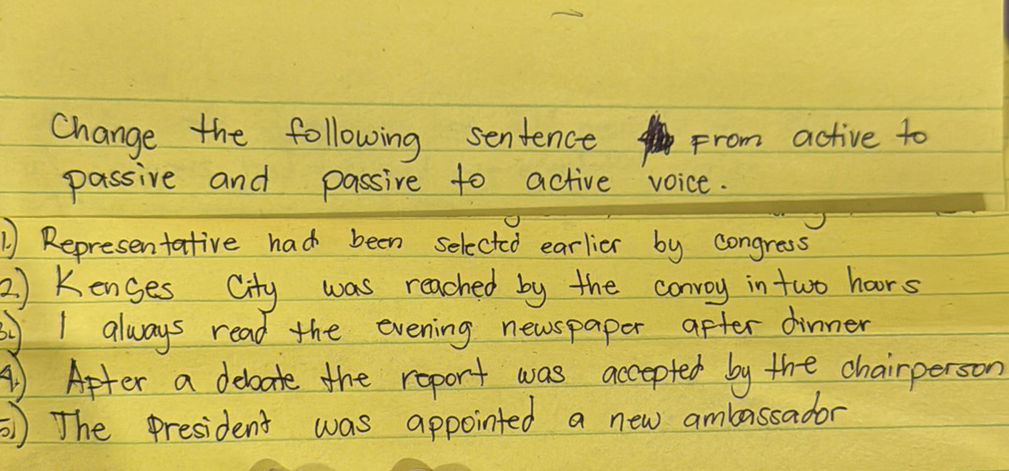 Change the following sentence From active to
passive and passive to active voice.
1.) Representative had been selected earlier by congress
2.) Kenses City was reached by the convoy in two hours
3.) I always read the evening newspaper after dinner
4.) After a debate the report was accepted by the chairperson
5.) The President was appointed a new ambassador